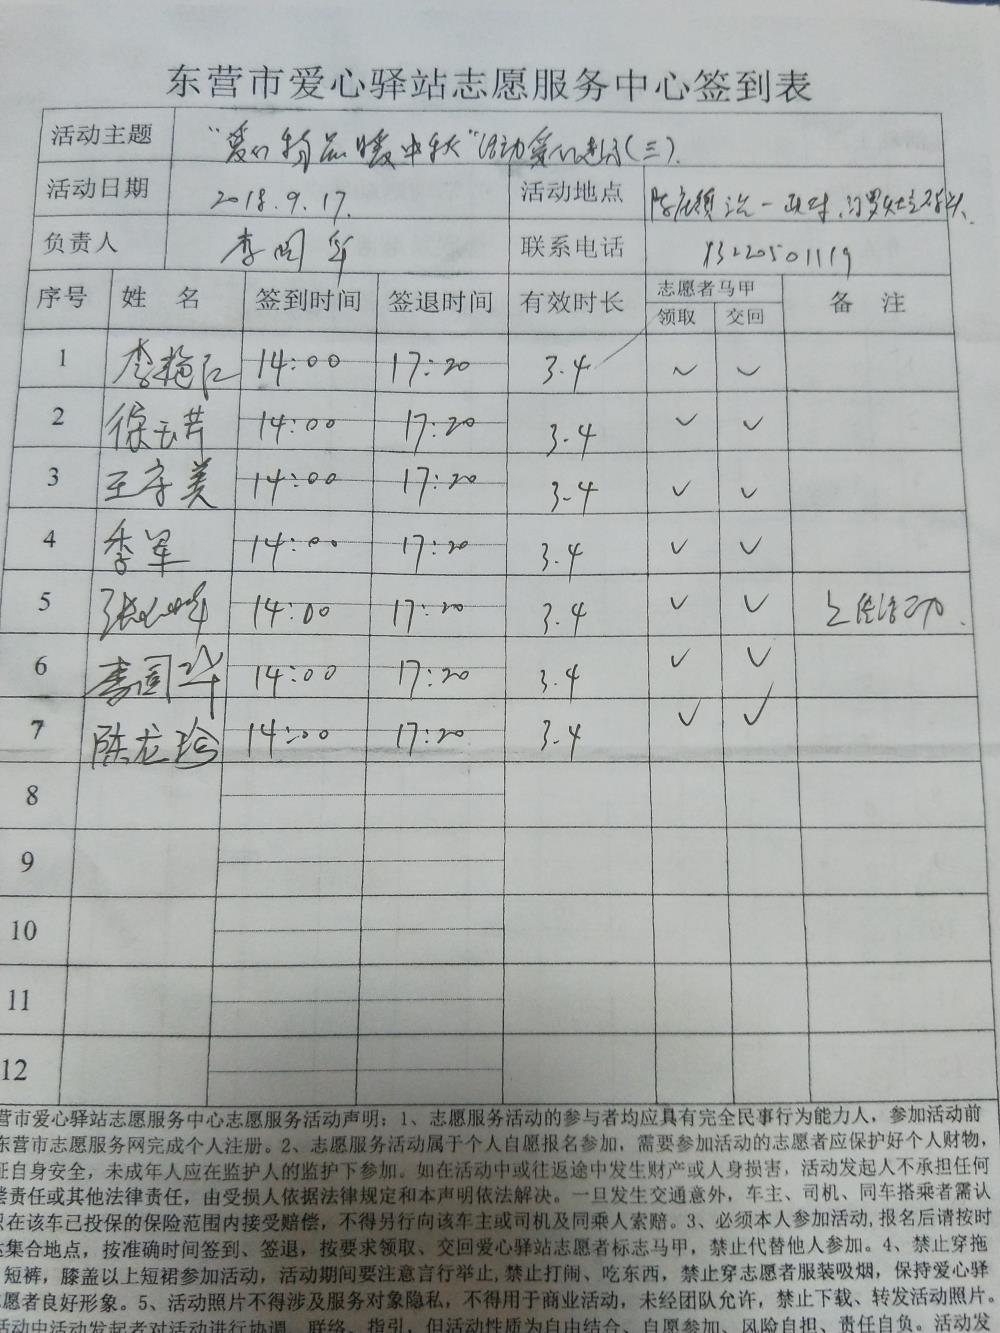 东营市爱心驿站志愿服务中心签到表
活动主题 "爱心物品暖中秋"活动爱心送(三).
活动日期 2018.9.17. 活动地点
负责人 李国华 联系电话 13220501119
序号 姓 名 签到时间 签退时间 有效时长 志愿者马甲 备 注
领取 交回
1 李艳红 14:00 17:20 3.4 ✓ ✓
2 徐云芹 14:00 17:20 3.4 ✓ ✓
3 王守美 14:00 17:20 3.4 ✓ ✓
4 李军 14:00 17:20 3.4 ✓ ✓
5 张 14:00 17:20 3.4 ✓ ✓ 活动.
6 李国华 14:00 17:20 3.4 ✓ ✓
7 陈龙珍 14:00 17:20 3.4 ✓ ✓
8
9
10
11
12
营市爱心驿站志愿服务中心志愿服务活动声明：1、志愿服务活动的参与者均应具有完全民事行为能力人，参加活动前
东营市志愿服务网完成个人注册。2、志愿服务活动属于个人自愿报名参加，需要参加活动的志愿者应保护好个人财物，
证自身安全，未成年人应在监护人的监护下参加。如在活动中或往返途中发生财产或人身损害，活动发起人不承担任何
偿责任或其他法律责任，由受损人依据法律规定和本声明依法解决。一旦发生交通意外，车主、司机、同车搭乘者需认
只在该车已投保的保险范围内接受赔偿，不得另行向该车主或司机及同乘人索赔。3、必须本人参加活动,报名后请按时
达集合地点，按准确时间签到、签退，按要求领取、交回爱心驿站志愿者标志马甲，禁止代替他人参加。4、禁止穿拖
短裤，膝盖以上短裙参加活动，活动期间要注意言行举止,禁止打闹、吃东西，禁止穿志愿者服装吸烟，保持爱心驿
愿者良好形象。5、活动照片不得涉及服务对象隐私，不得用于商业活动，未经团队允许，禁止下载、转发活动照片。
活动中活动发起者对活动进行协调、联络、指引，但活动性质为自由结合、自愿参加、风险自担、责任自负。活动发